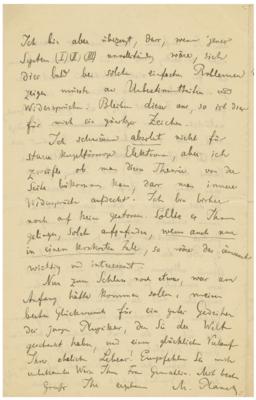 Ich bin aber überzeugt, dass, wenn jenes
System (I) (II) (III) unvollständig wäre, sich
dies bald bei solchen einfachen Problemen
zeigen müsste an Unbestimmtheiten und
Widersprüchen. Bleiben diese aus, so ist dies
für mich ein günstiges Zeichen.
Ich schwärme absolut nicht für
starre kugelförmige Elektronen, aber ich
zweifle ob man dieser Theorie von der
Seite beikommen kann, dass man innere
Widersprüche aufdeckt. Ich bin bisher
noch auf keine gestossen. Sollte es Ihnen
gelingen, solche aufzufinden, wenn auch nur
in einem konkreten Falle, so wäre das äusserst
wichtig und interessant.
Nun zum Schluss noch etwas, was am
Anfang hätte kommen sollen, meinen
besten Glückwunsch für ein gutes Gedeihen
des jungen Physikers, den Sie der Welt
geschenkt haben, und einen glücklichen Verlauf
Ihre Empfehlen Sie mich
Ihrer Frau Gemahlin. Mit bestem
Gruss Ihr ergebener M. Planck